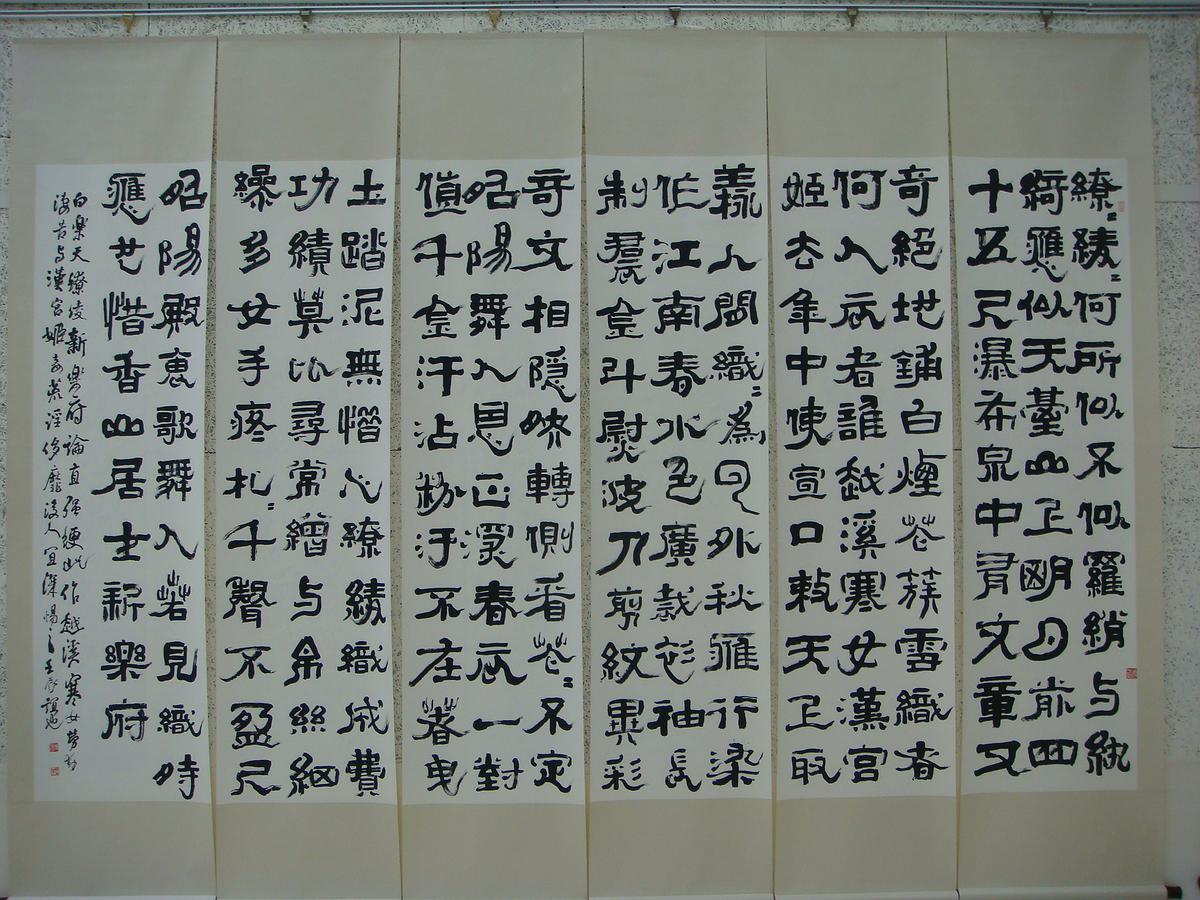 繚〻綾〻何所似不似羅綃与紈
綺應似天臺山上明月前四
十五尺瀑布泉中有文章又
奇絕地鋪白煙花簇雪織者
何人衣者誰越溪寒女漢宮
姬去年中使宣口敕天上取
樣人間織〻為雲外秋雁行染
作江南春水色廣裁衫袖長
制裙金斗熨波刀剪紋異彩
奇文相隱映轉側看花〻不定
昭陽舞人恩正深春衣一對
值千金汗沾粉污不在著曳
土踏泥無惜心繚綾織成費
功績莫比尋常繒与帛絲細
繰多女手疼札〻千聲不盈尺
昭陽殿裏歌舞人若見織時
應也惜香山居士新樂府
白樂天繚綾新樂府論直強硬此作越溪寒女勞形
淒苦与漢宮姬妾荒淫侈靡後人宜深惕之